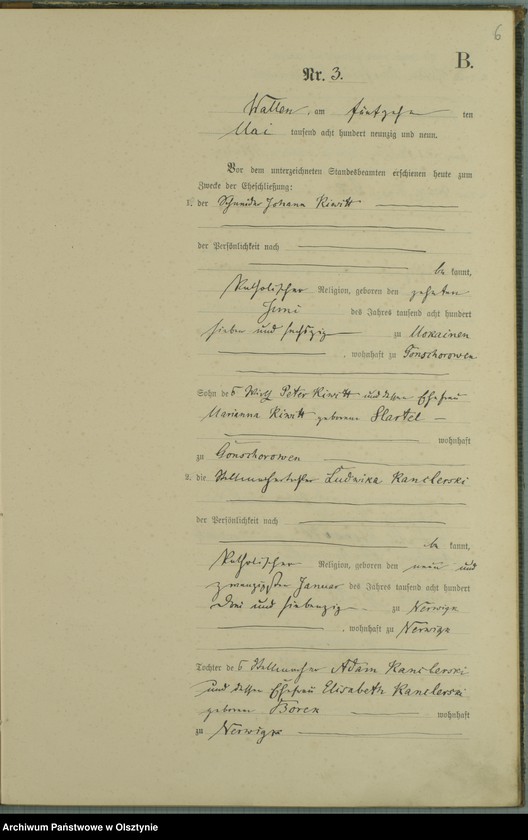 6
B.
Nr. 3.
Wallen, am fünfzehn ten
Mai tausend acht hundert neunzig und neun.
Vor dem unterzeichneten Standesbeamten erschienen heute zum
Zwecke der Eheschließung:
1. der Schneider Johann Kiwitt
der Persönlichkeit nach
be kannt,
katholischer Religion, geboren den zehnten
Juni des Jahres tausend acht hundert
sieben und sechszig zu Mokainen
, wohnhaft zu Gonschorowen
Sohn des Wirth Peter Kiwitt und dessen Ehefrau
Marianna Kiwitt geborene
wohnhaft
zu Gonschorowen
2. die Stellmachertochter Ludwika Kanclerski
der Persönlichkeit nach
be kannt,
katholischer Religion, geboren den neun und
zwanzigsten Januar des Jahres tausend acht hundert
drei und siebenzig zu Nerwigk
, wohnhaft zu Nerwigk
Tochter des Stellmacher Adam Kanclerski
und dessen Ehefrau Elisabeth Kanclerski
geborene Borek wohnhaft
zu Nerwigk
Archiwum Państwowe w Olsztynie